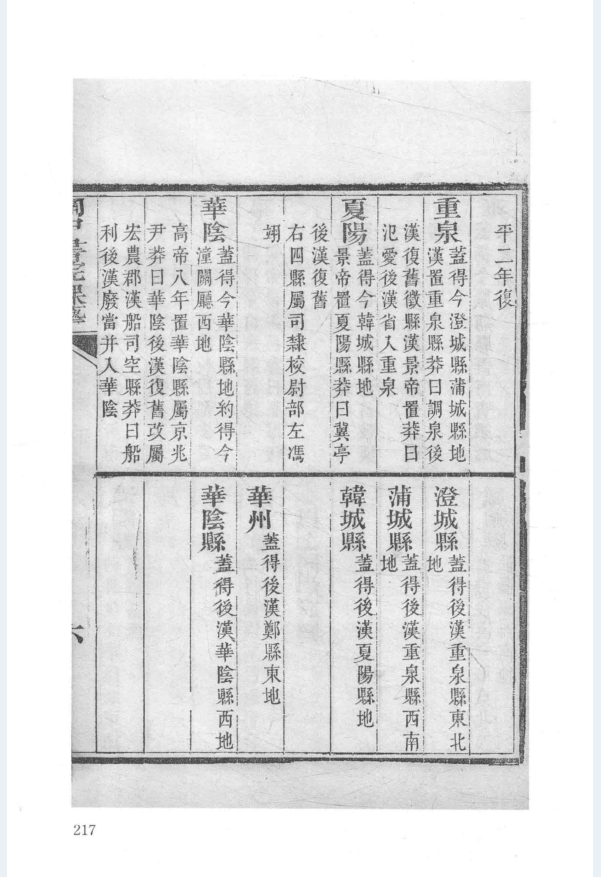 平二年復
重泉蓋得今澄城縣蒲城縣地
漢置重泉縣莽曰調泉後
漢復舊徵縣漢景帝置莽曰
汜愛後漢省入重泉
夏陽蓋得今韓城縣地
景帝置夏陽縣莽曰冀亭
後漢復舊
右四縣屬司隸校尉部左馮
翊
華陰蓋得今華陰縣地約得今
潼關廳西地
高帝八年置華陰縣屬京兆
尹莽曰華陰後漢復舊改屬
宏農郡漢船司空縣莽曰船
利後漢廢當并入華陰
澄城縣蓋得後漢重泉縣東北
地
蒲城縣蓋得後漢重泉縣西南
地
韓城縣蓋得後漢夏陽縣地
華州蓋得後漢鄭縣東地
華陰縣蓋得後漢華陰縣西地
217